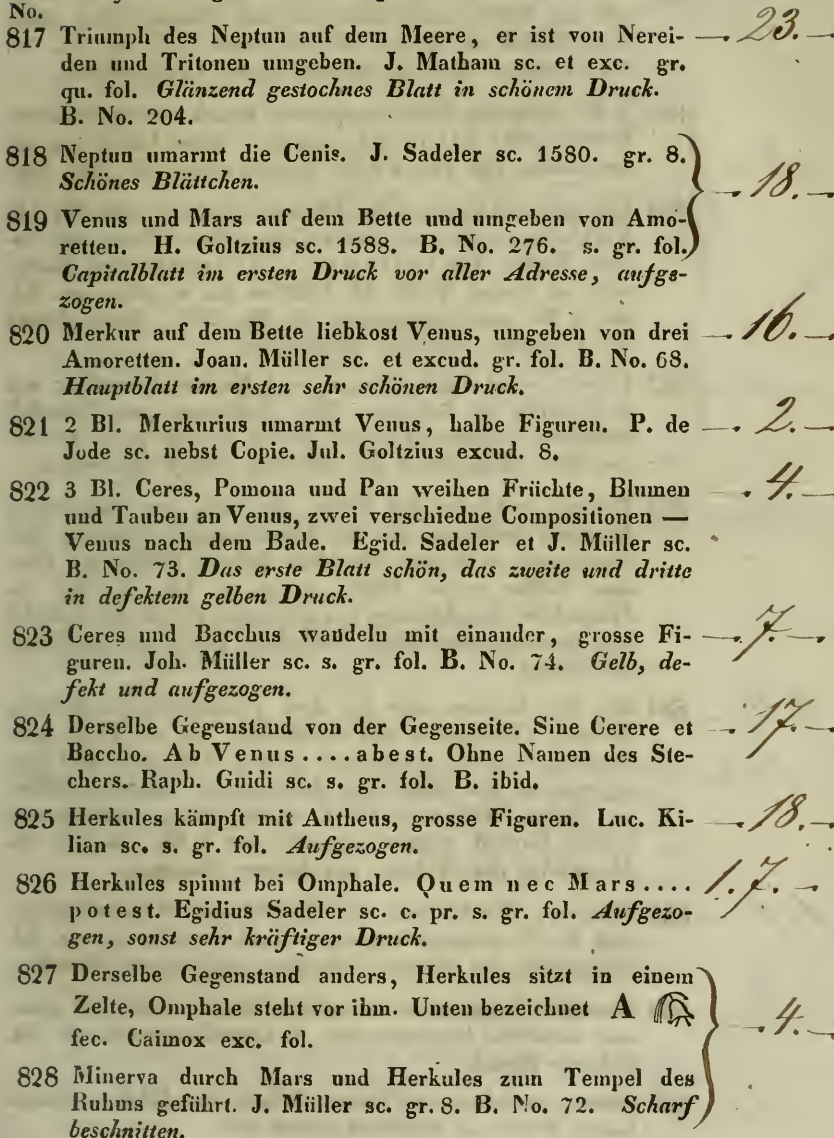 No.
817 Triumph des Neptun auf dem Meere, er ist von Nerei- —. 23. —
den und Tritonen umgeben. J. Matham sc. et exc. gr.
qu. fol. Glänzend gestochnes Blatt in schönem Druck.
B. No. 204.
818 Neptun umarmt die Cenis. J. Sadeler sc. 1580. gr. 8.
Schönes Blättchen.
—. 18. —
819 Venus und Mars auf dem Bette und umgeben von Amo-
retten. H. Goltzius sc. 1588. B. No. 276. s. gr. fol.
Capitalblatt im ersten Druck vor aller Adresse, aufge-
zogen.
820 Merkur auf dem Bette liebkost Venus, umgeben von drei —. 16. —
Amoretten. Joan. Müller sc. et excud. gr. fol. B. No. 68.
Hauptblatt im ersten sehr schönen Druck.
821 2 Bl. Merkurius umarmt Venus, halbe Figuren. P. de —. 2. —
Jode sc. nebst Copie. Jul. Goltzius excud. 8.
822 3 Bl. Ceres, Pomona und Pan weihen Früchte, Blumen . 4. —
und Tauben an Venus, zwei verschiedne Compositionen —
Venus nach dem Bade. Egid. Sadeler et J. Müller sc.
B. No. 73. Das erste Blatt schön, das zweite und dritte
in defektem gelben Druck.
823 Ceres und Bacchus wandeln mit einander, grosse Fi- —. 7. —
guren. Joh. Müller sc. s. gr. fol. B. No. 74. Gelb, de-
fekt und aufgezogen.
824 Derselbe Gegenstand von der Gegenseite. Sine Cerere et —. 17. —
Baccho. Ab Venus .... abest. Ohne Namen des Ste-
chers. Raph. Guidi sc. s. gr. fol. B. ibid.
825 Herkules kämpft mit Antheus, grosse Figuren. Luc. Ki- —. 18. —
lian sc. s. gr. fol. Aufgezogen.
826 Herkules spinnt bei Omphale. Quem nec Mars .... 1. 7. —
potest. Egidius Sadeler sc. c. pr. s. gr. fol. Aufgezo-
gen, sonst sehr kräftiger Druck.
827 Derselbe Gegenstand anders, Herkules sitzt in einem
Zelte, Omphale steht vor ihm. Unten bezeichnet A
fec. Caimox exc. fol.
—. 4. —
828 Minerva durch Mars und Herkules zum Tempel des
Ruhms geführt. J. Müller sc. gr. 8. B. No. 72. Scharf
beschnitten.